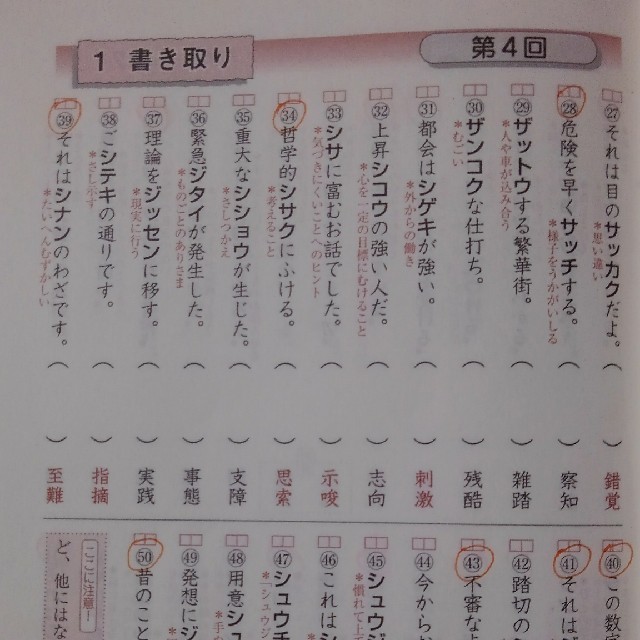 第4回
1 書き取り
㉗それは目のサッカクだよ。
*思い違い
錯覚
㉘危険を早くサッチする。
*様子をうかがいしる
察知
㉙ザットウする繁華街。
*人や車が込み合う
雑踏
㉚ザンコクな仕打ち。
*むごい
残酷
㉛都会はシゲキが強い。
*外からの働き
刺激
㉜上昇シコウの強い人だ。
*心を一定の目標にむけること
志向
㉝シサに富むお話でした。
*気づきにくいことへのヒント
示唆
㉞哲学的シサクにふける。
*考えること
思索
㉟重大なシショウが生じた。
*さしつかえ
支障
㊱緊急ジタイが発生した。
*ものごとのありさま
事態
㊲理論をジッセンに移す。
*現実に行う
実践
㊳ごシテキの通りです。
*さし示す
指摘
㊴それはシナンのわざです。
*たいへんむずかしい
至難
㊵この数字
㊶それは
㊷踏切の
㊸不審な
㊹今から
㊺シュウジ
*慣れて上
㊻これは
㊼シュウ
㊽用意シュ
㊾発想にジ
㊿昔のこと
ここに注意！
ど、他にはな